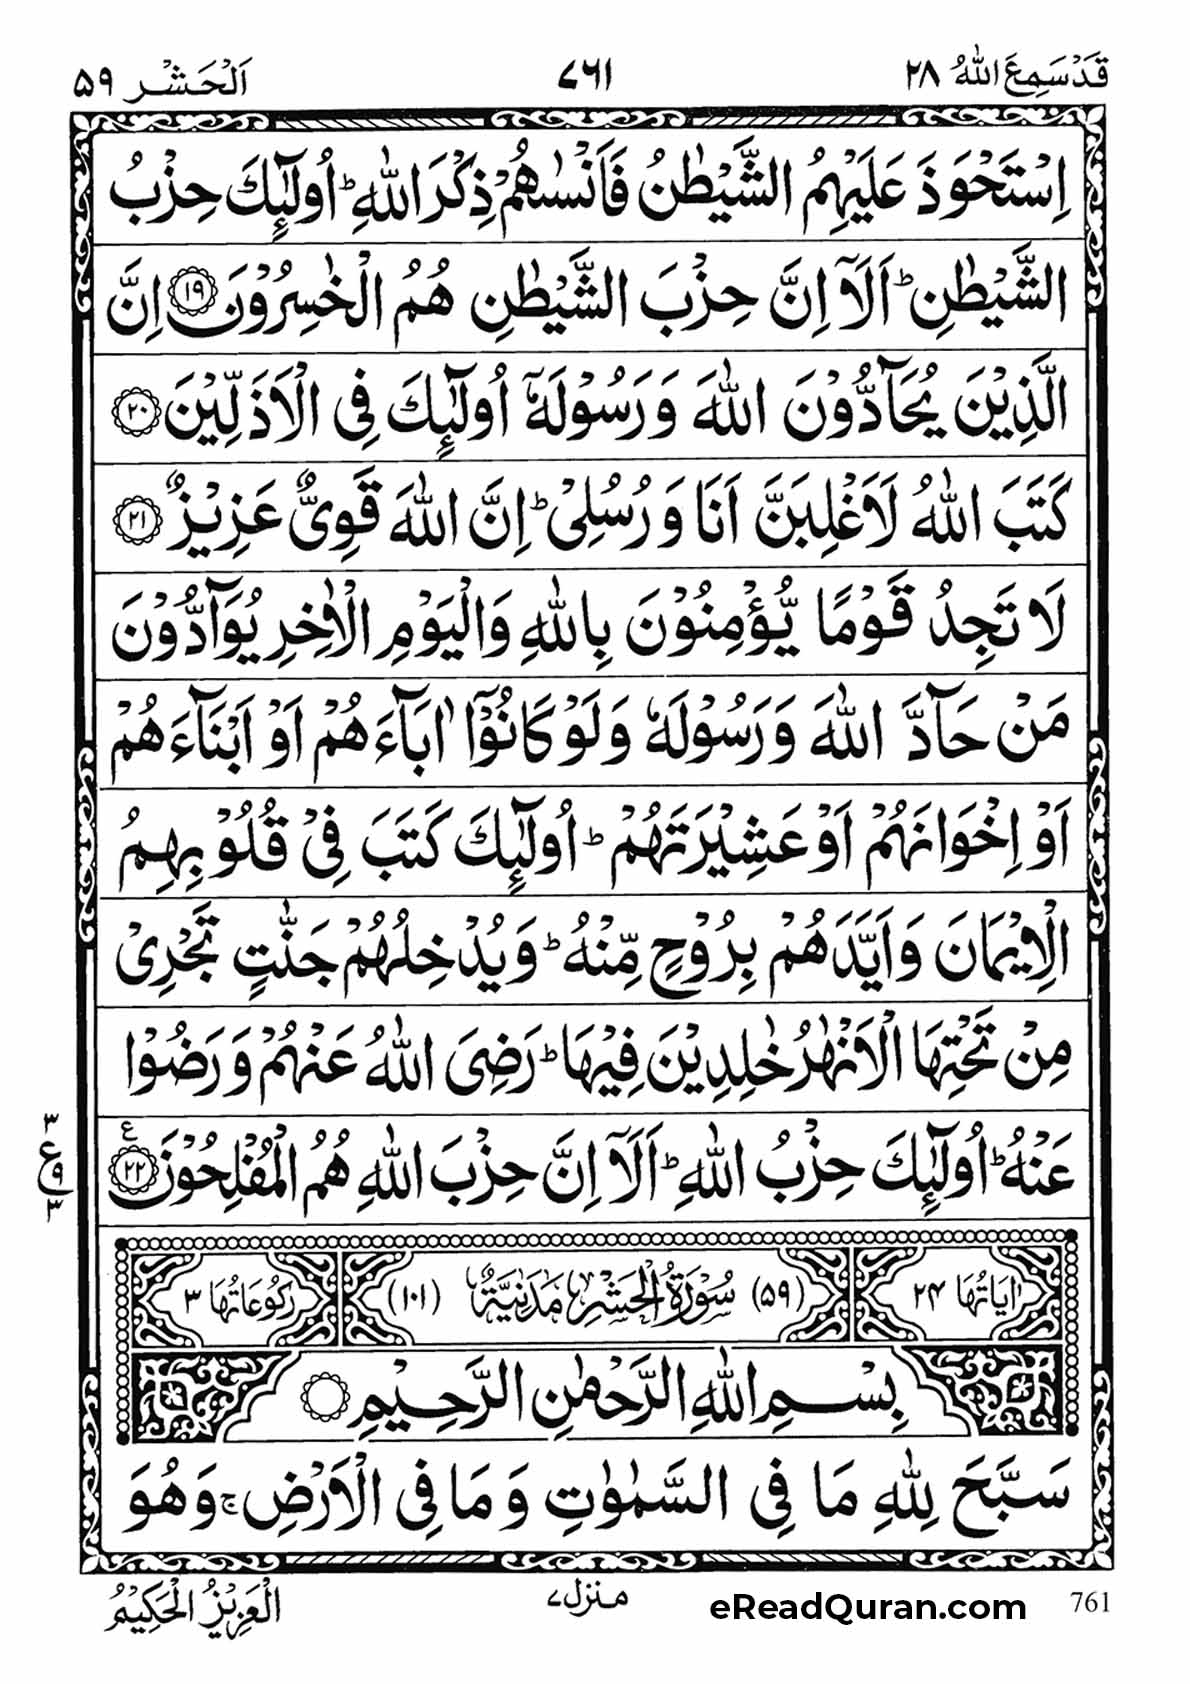 قَدْ سَمِعَ اللّٰهُ ۲۸
۷۶۱
اَلْحَشْر ۵۹
اِسْتَحْوَذَ عَلَيْهِمُ الشَّيْطٰنُ فَاَنْسٰىهُمْ ذِكْرَ اللّٰهِ ؕ اُولٰٓئِكَ حِزْبُ
الشَّيْطٰنِ ؕ اَلَاۤ اِنَّ حِزْبَ الشَّيْطٰنِ هُمُ الْخٰسِرُوْنَ ۱۹ اِنَّ
الَّذِيْنَ يُحَآدُّوْنَ اللّٰهَ وَرَسُوْلَهٗۤ اُولٰٓئِكَ فِى الْاَذَلِّيْنَ ۲۰
كَتَبَ اللّٰهُ لَاَغْلِبَنَّ اَنَا وَرُسُلِىْ ؕ اِنَّ اللّٰهَ قَوِىٌّ عَزِيْزٌ ۲۱
لَا تَجِدُ قَوْمًا يُّؤْمِنُوْنَ بِاللّٰهِ وَالْيَوْمِ الْاٰخِرِ يُوَآدُّوْنَ
مَنْ حَآدَّ اللّٰهَ وَرَسُوْلَهٗ وَلَوْ كَانُوْۤا اٰبَآءَهُمْ اَوْ اَبْنَآءَهُمْ
اَوْ اِخْوَانَهُمْ اَوْ عَشِيْرَتَهُمْ ؕ اُولٰٓئِكَ كَتَبَ فِىْ قُلُوْبِهِمُ
الْاِيْمَانَ وَاَيَّدَهُمْ بِرُوْحٍ مِّنْهُ ؕ وَيُدْخِلُهُمْ جَنّٰتٍ تَجْرِىْ
مِنْ تَحْتِهَا الْاَنْهٰرُ خٰلِدِيْنَ فِيْهَا ؕ رَضِىَ اللّٰهُ عَنْهُمْ وَرَضُوْا
عَنْهُ ؕ اُولٰٓئِكَ حِزْبُ اللّٰهِ ؕ اَلَاۤ اِنَّ حِزْبَ اللّٰهِ هُمُ الْمُفْلِحُوْنَ ۲۲ ع
۳
ع ۹
۳
اٰيَاتُهَا ۲۴
(۵۹) سُوْرَةُ الْحَشْرِ مَدَنِيَّةٌ (۱۰۱)
رُكُوْعَاتُهَا ۳
بِسْمِ اللّٰهِ الرَّحْمٰنِ الرَّحِيْمِ
سَبَّحَ لِلّٰهِ مَا فِى السَّمٰوٰتِ وَمَا فِى الْاَرْضِ ۚ وَهُوَ
761
eReadQuran.com
منزل ۷
الْعَزِيْزُ الْحَكِيْمُ